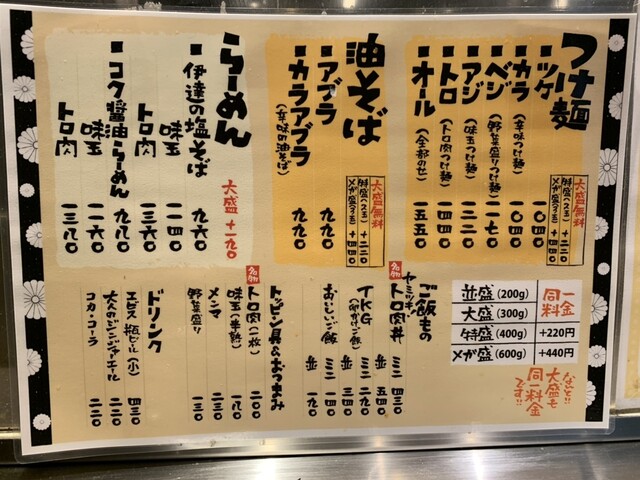 つけ麺
■ツケ 一〇四〇
■カラ(辛味つけ麺) 一〇四〇
■ベジ(野菜盛りつけ麺) 一一七〇
■アジ(味玉つけ麺) 一二二〇
■トロ(トロ肉つけ麺) 一四四〇
■オール(全部のせ) 一五五〇
大盛無料
特盛(ハス玉) +二二〇
メガ盛(ス玉) +四四〇
油そば
■アブラ 九九〇
■カラアブラ(辛味の油そば) 九九〇
大盛無料
特盛(ハス玉) +二二〇
メガ盛(ス玉) +四四〇
らーめん
■伊達の塩そば 九六〇
味玉 一一四〇
トロ肉 一三六〇
■コク醤油らーめん 九八〇
味玉 一一六〇
トロ肉 一三八〇
大盛 +一九〇
並盛(200g) 同一料金
大盛(300g)
特盛(400g) +220円
メガ盛(600g) +440円
なんと!!
大盛も
同一料金
です!!
ご飯もの
ヤミツキ!
トロ肉丼 ミニ 四三〇
並 五四〇
TKG(卵かけご飯) ミニ 二二〇
並 三四〇
おいしいご飯 ミニ 一四〇
並 一九〇
トッピン具&おつまみ
名物 トロ肉(一枚) 二〇〇
名物 味玉(半熟) 一八〇
メンマ 二三〇
野菜盛り 一三〇
ドリンク
エビス 瓶ビール(小) 四三〇
大人のジンジャーエール 二二〇
コカ・コーラ 二二〇